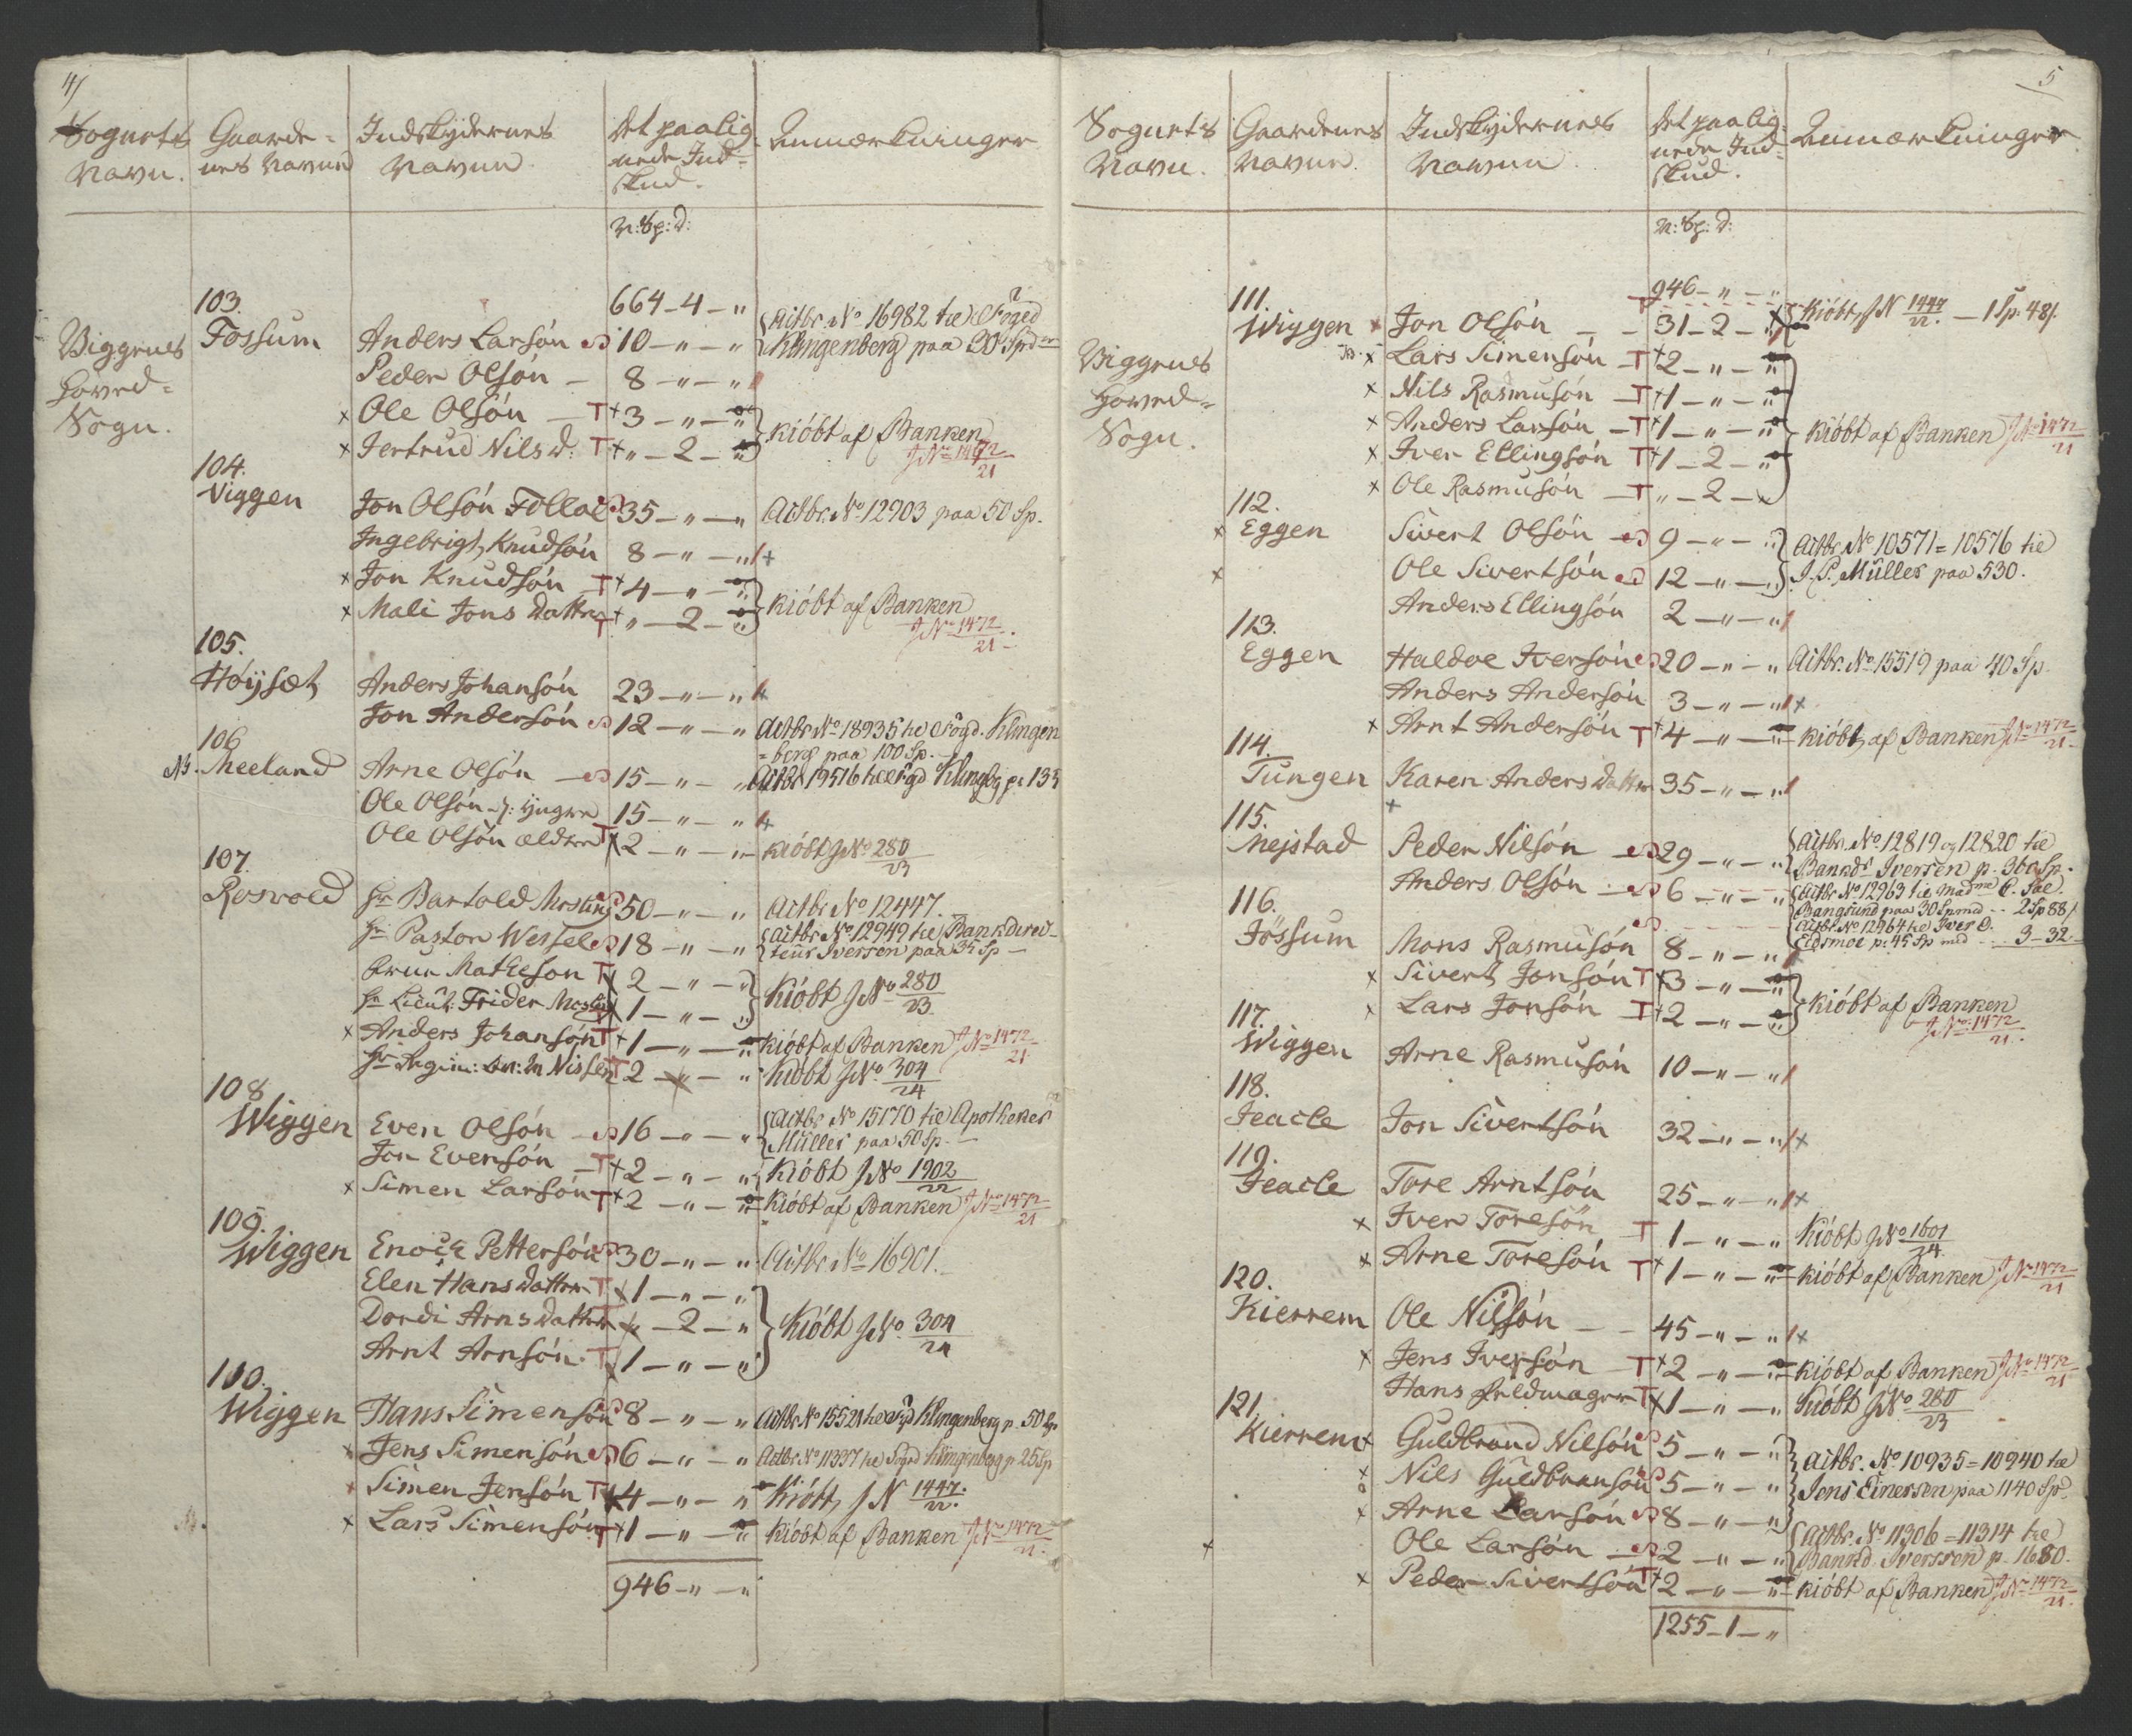 4/
Sognets Navn. | Gaardenes Navne | Indskydernes Navne | Det paalignede Indskud. | Anmærkninger
N: Sp: d:
664 – 4 – "
Biggenes Hoved= Sogn.
103. Fossum
Anders Larsøn 10 – " – " Actbr. No 16982 til Foged Klingenberg paa 30 Spdr
Peder Olsøn – 8 – " – "
x Ole Olsøn – T + 3 – " – "
x Jertrud Nilsd: T + " – 2 – " kiøbt af Banken J No 1472/21
104. Viggen
Jon Olsøn Follal 35 – " – " Actbr. No 12903 paa 50 Sp.
Ingebrigt Knudsøn 8 – " – "
x Jon Knudsøn T + 4 – " – "
x Mali Jons Datter T + " – 2 – " kiøbt af Banken J No 1472/21
105. Høysæt
Anders Johansøn 23 – " – "
Jon Andersøn 12 – " – " Actbr No 18935 til Fogd. Klingen=
=berg paa 100 Sp.
106. NB. Meeland
Arne Olsøn 15 – " – " Actbr 19516 til Fogd Klingbg p: 135
Ole Olsøn d: yngre 15 – " – "
Ole Olsøn ældre T 2 – " – " kiøbt J No 280/23
107. Rosvold
Hr Bartold 50 – " – " Actbr No 12447.
Hr Pastor Wessel 18 – " – " Actbr. No 12949 til Bankdirec-
teur Iversen paa 35 Sp –
Matheson T 2 – " – "
Hr Lieut: Frider 1 – " – " Kiøbt J No 280/23
x Anders Johansøn T + 1 – " – " kiøbt af Banken J No 1472/21
Hr Nissen T 2 – " – " Kiøbt J No 304/24
108. Wiggen
Even Olsøn 16 – " – " Actbr No 15170 til Apotheker
Müller paa 50 Sp. –
Jon Evensøn T + 2 – " – " Kiøbt J No 1902/22
x Simen Larsøn T + 2 – " – " Kiøbt af Banken J No 1472/21
109. Wiggen
Enock Pettersøn 30 – " – " Actbr. No 16901.
Elen Hans Datter T 1 – " – "
Dordi Arns Datter " – 2 – " Kiøbt J No. 304/24
Arnt Arnsøn. T 1 – " – "
110. Wiggen
Hans Simensøn 8 – " – " Actbr No 15521 til Fogd Klingenberg p. 50 Sp
x Jens Simensøn 6 – " – " Actbr No 11337 til Fogd Klingenberg p 25 Sp
x Simen Jensøn T 4 – " – " Kiøbt J N 1447/22.
x Lars Simensøn T + 1 – " – " kiøbt af Banken J No 1472/21.
946 – " – "
5
Sognets Navn. | Gaardenes Navne. | Indskydernes Navne. | Det paalignede Indskud. | Anmærkninger.
N: Sp: d:
946 – " – "
Biggenes Hoved= Sogn.
111. Wiggen
x Jon Olsøn – – 31 – 2 – " Kiøbt J N 1447/22. – 1 Sp. 48/.
x Lars Simensøn T + 2 – " – "
x Nils Rasmusøn T + 1 – " – "
x Anders Larsøn T + 1 – " – " kiøbt af Banken J No 1472/21
x Iver Ellingsøn T + 1 – 2 – "
x Ole Rasmusøn T " – 2 –
112. x Eggen
Sivert Olsøn 9 – " – " Actbr. No 10571 = 10576 til
x Ole Sivertsøn 12 – " – " J. P. Müller paa 530.
Anders Ellingsøn 2 – " – "
113. Eggen
Haldoe Iversøn 20 – " – " Actbr. No 15519 paa 40 Sp.
Anders Andersøn 3 – " – "
x Arnt Andersøn T + 4 – " – " kiøbt af Banken J No 1472/21
114. Tungen
Karen Anders Datter 35 – " – "
115. Mejstad
Peder Nilsøn 29 – " – " Actbr. No 12819 og 12820 til
Bankdr Iversen p. 360 Sp.
Anders Olsøn 6 – " – " Actbr No 12963 til Madme C. Sal.
Bangsund paa 30 Sp med – – 2 Sp 88/
Actbr. No 12964 til Iver O.
Eidsmoe p: 45 Sp med – – 3 – 32.
116. Fossum
Mons Rasmusøn 8 – " – "
x Sivert Jonsøn T 3 – " – "
x Lars Jonsøn T + 2 – " – " kiøbt af Banken J No 1472/21.
117. Wiggen
Arne Rasmusøn 10 – " – "
118. Jeacle
Jon Sivertsøn 32 – " – "
119. Jeacle
Tore Arntsøn 25 – " – "
x Iver Toresøn T 1 – " – " Kiøbt J No 1601/24.
x Arne Toresøn T + 1 – " – " kiøbt af Banken J No 1472/21
120. Kierrem
Ole Nilsøn – – 45 – " – "
x Jens Iversøn T + 2 – " – " kiøbt af Banken J No 1472/21
Hans Feldmager T 1 – " – " Kiøbt J No 280/23
121. Kierrem
x Guldbrand Nilsøn 5 – " – " Actbr. No 10935 = 10940 til
x Nils Guldbransøn 5 – " – " Jens Einersen paa 1140 Sp.
x Arne Larsøn 8 – " – "
x Ole Larsøn 2 – " – " Actbr. No 11306 = 11314 til
Bankd. Iverssen p. 1680.
x Peder Sivertsøn T + 2 – " – " kiøbt af Banken J No 1472/21.
1255 – 1 – "